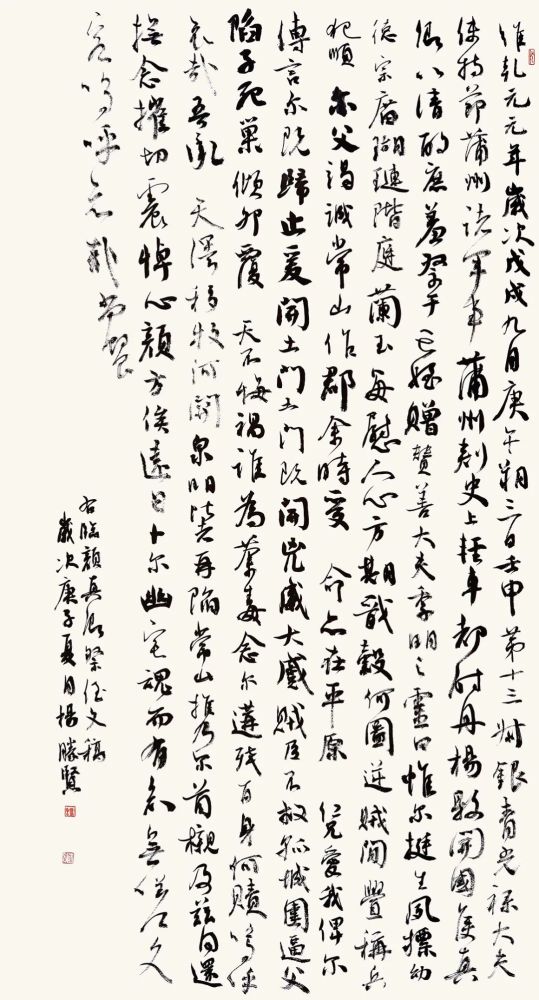 維乾元元年歲次戊戌九月庚午朔三日壬申第十三叔銀青光祿大夫
使持節蒲州諸軍事蒲州刺史上輕車都尉丹楊縣開國侯真
卿以清酌庶羞祭于亡姪贈贊善大夫季明之靈曰惟爾挺生夙標幼
德宗廟瑚璉階庭蘭玉每慰人心方期戩穀何圖逆賊閒釁稱兵
犯順爾父竭誠常山作郡余時受命亦在平原仁兄愛我俾爾
傳言爾既歸止爰開土門土門既開兇威大蹙賊臣不救孤城圍逼父
陷子死巢傾卵覆天不悔禍誰為荼毒念爾遘殘百身何贖嗚呼
哀哉吾承天澤移牧河關泉明比者再陷常山携爾首櫬及茲同還
撫念摧切震悼心顏方俟遠日卜爾幽宅魂而有知無嗟久
客嗚呼哀哉尚饗
右臨顏真卿祭侄文稿
歲次庚子夏月楊勝賢